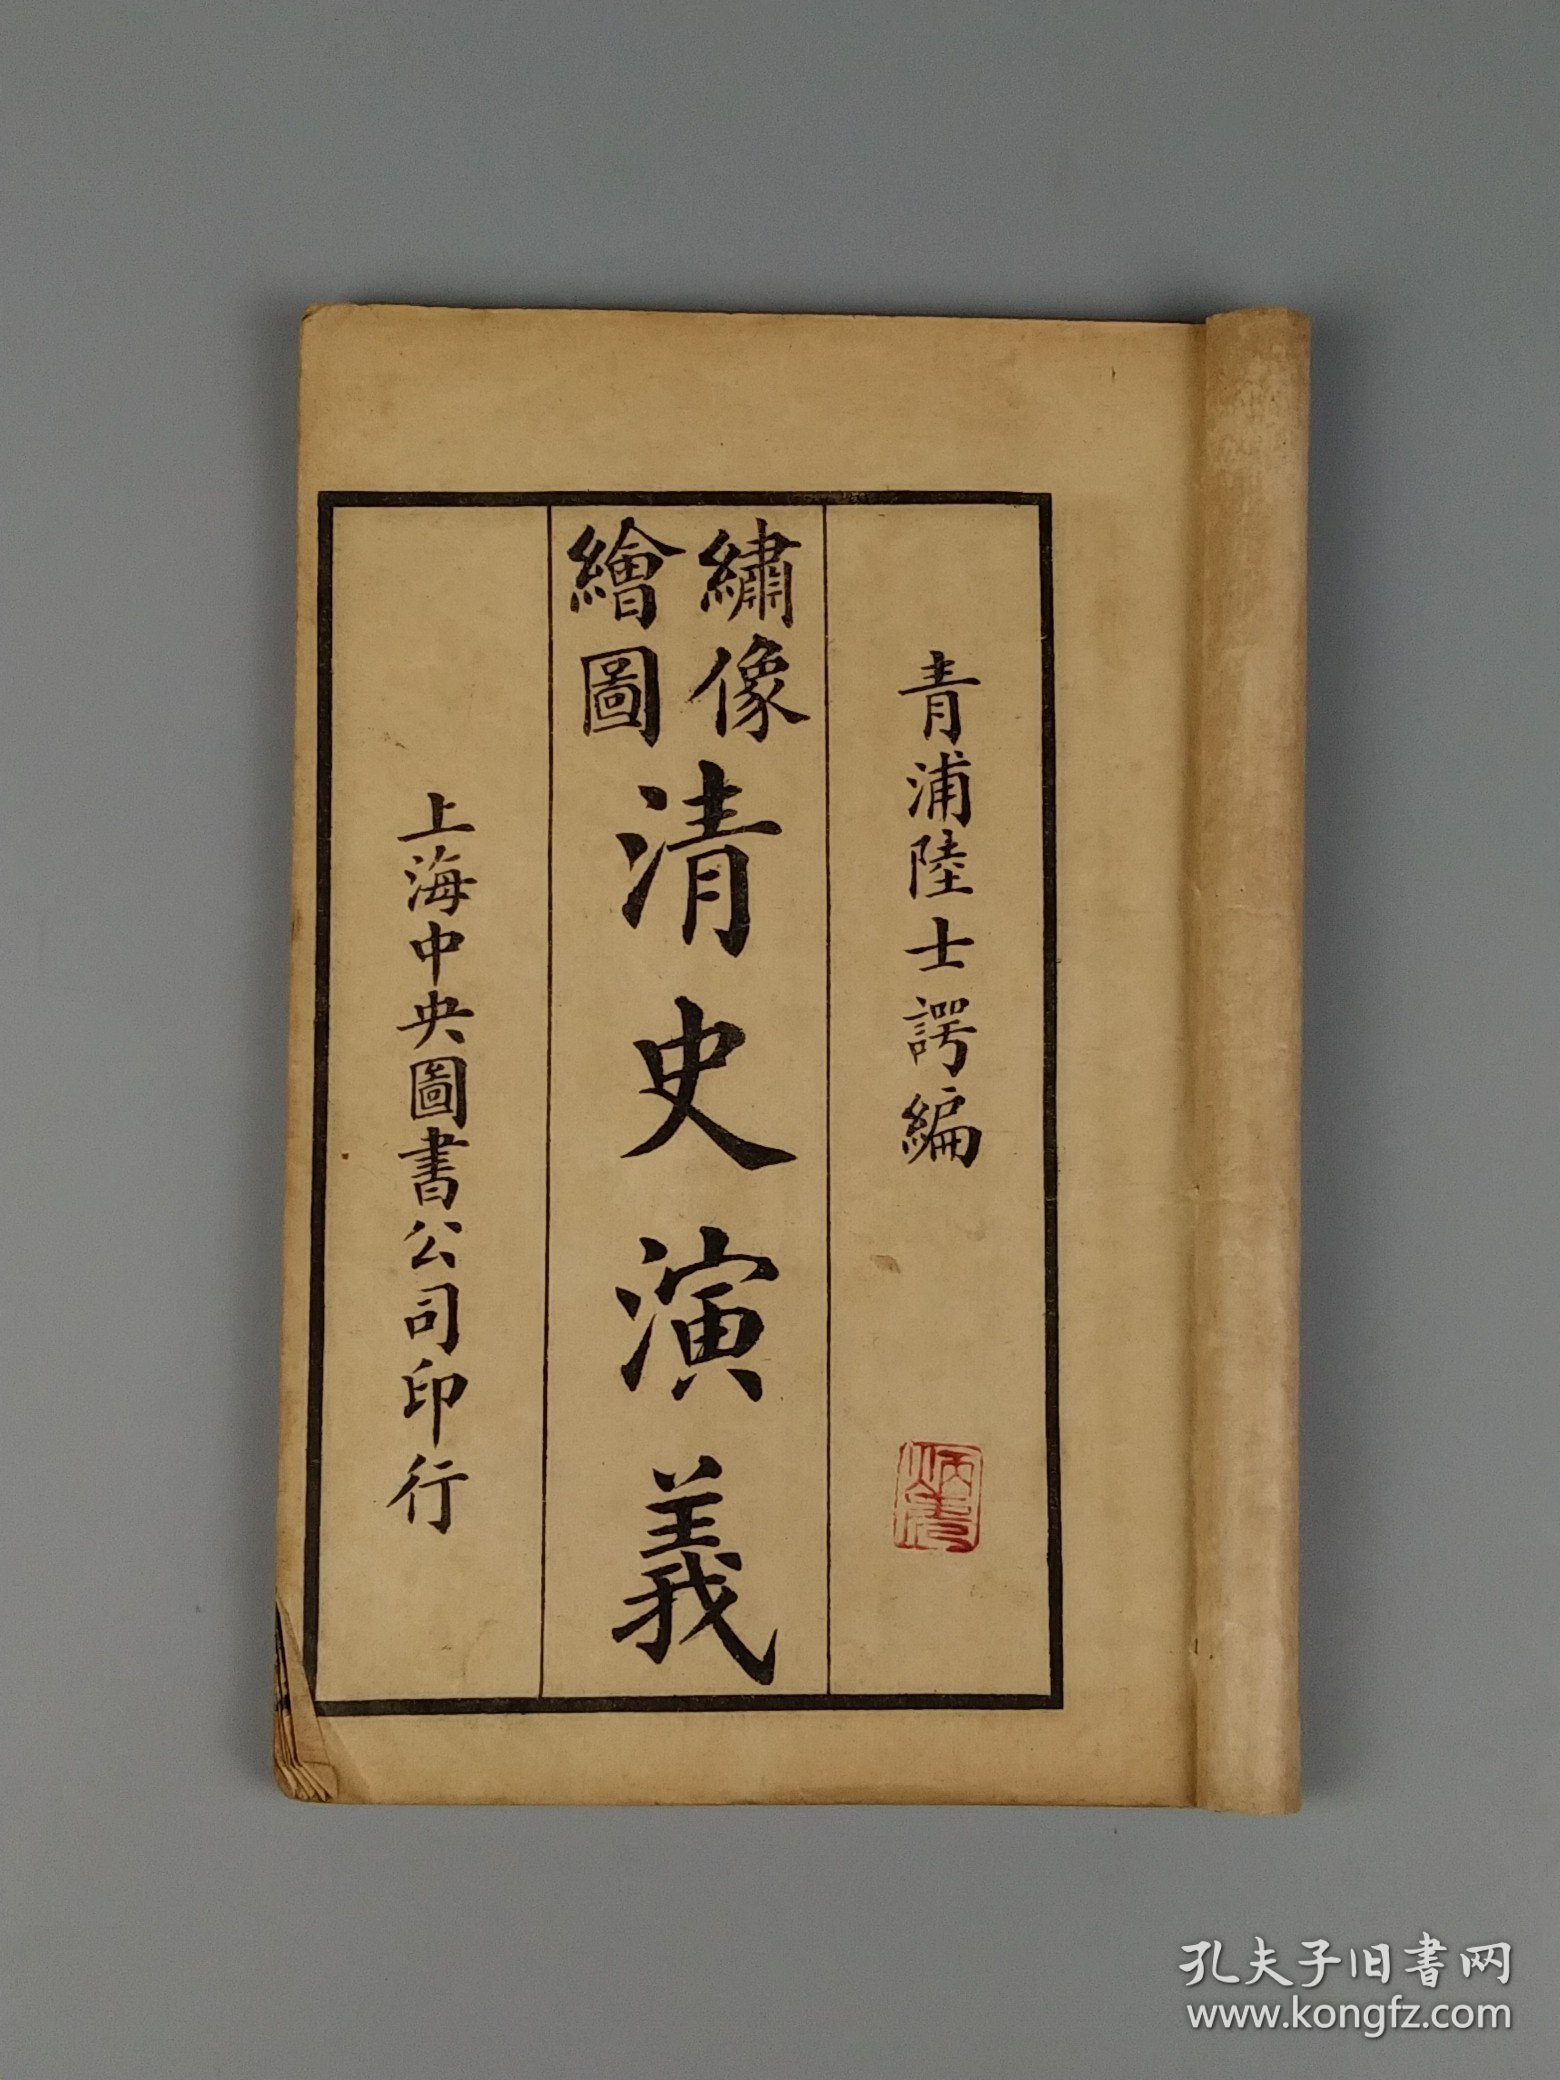 青浦陸士諤編
繡像
繪圖
清史演義
上海中央圖書公司印行
孔夫子旧書网
www.kongfz.com